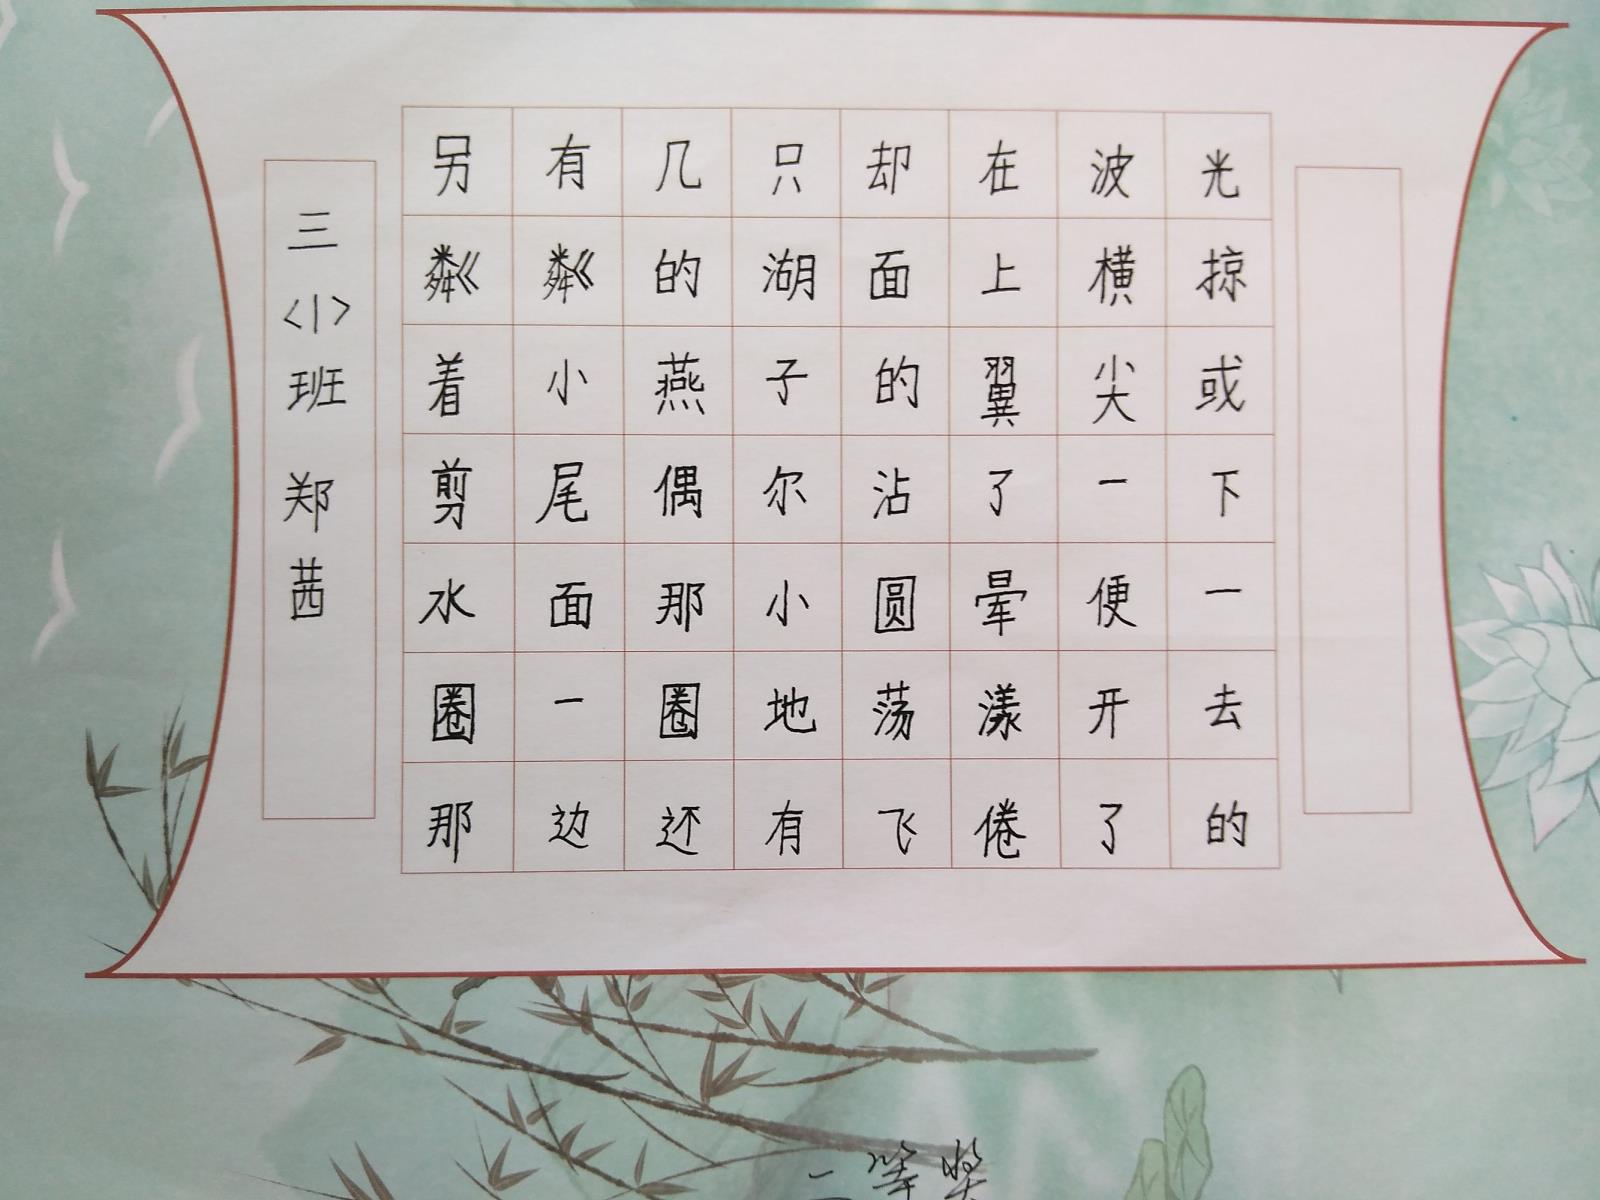 另有几只却在波光
粼粼的湖面上横掠
着小燕子的翼尖或
剪尾偶尔沾了一下
水面那小圆晕便一
圈一圈地荡漾开去
那边还有飞倦了的
三<1>班 郑茜
二等奖